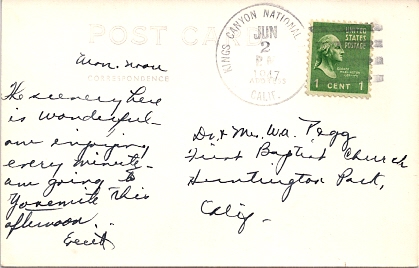 POST CARD
CORRESPONDENCE
Mon. noon
The scenery here
is wonderful -
am enjoying
every minute -
am going to
Yosemite this
afternoon.
KINGS CANYON NATIONAL
JUN
2
1947
CALIF.
UNITED
STATES
POSTAGE
1 CENT 1
Dr. & Mrs. W.A. Pegg
First Baptist Church
Huntington Park,
Calif -